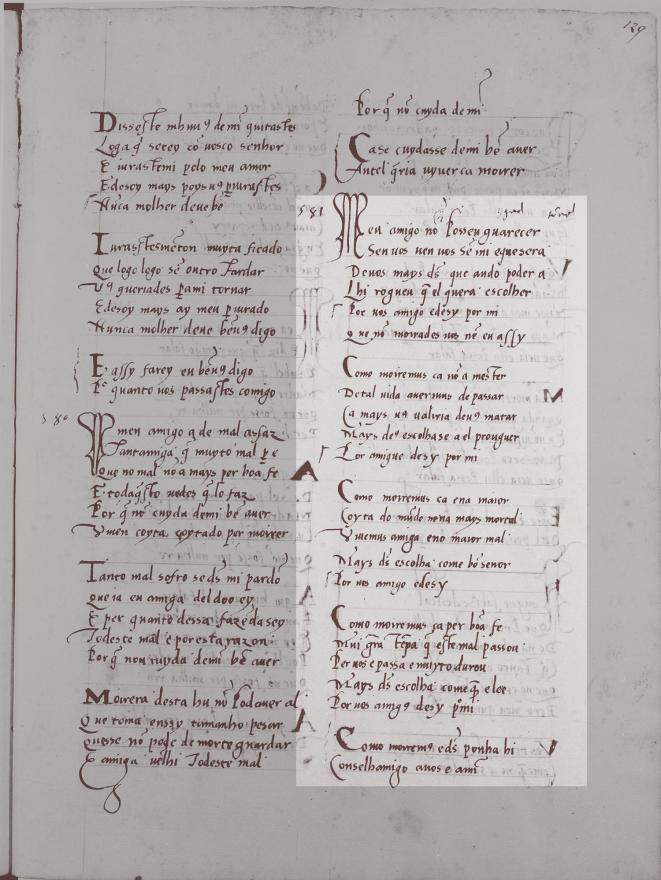 139
Dissestes mhuu9 de mi guitastes
Loga q̃ serey cõ vosco senhor
E iurastemi pelo meu amor
Edesoy mays poys u9 ꝑiurastes
Nũca molher deve bẽ
Iurastesmenton muyto ficado
Que logo logo sẽ outro tardar
V9 queriades ꝑami tornar
Edesoy mays ay meu ꝑiurado
Nunca molher deve bẽu9 digo
E assy farey eu bẽu9 digo
Por quanto vos passastes comigo
580
meu amigo
Tantamiga q̃ muyto mal ꝑe
Que no mal nõ a mays per boa fe
E todaq̃sto vedes q̃ lo faz
Por q̃ nõ cuyda demi bẽ aver
Viven coyta coytado per morrer
Tanto mal sofro seds mi pardo
Que ia eu amiga del doo ey
E per quanto dessa fazeda sey
Todeste mal e por esta razon
Por q̃ non cuyda demi bẽ aver
Morrera desta hu nõ pod aver al
Que toma enssy tamanho pesar
quesse nõ pode de morte guardar
E amiga velhi todeste mal
Por q̃ nõ cuyda de mi
Case cuydasse demi bẽ aver
Antel q̃ria vyverca morrer
581
Meu amigo nõ possen guarecer
Sen vos nen vos sẽ mi eque sera
De vos mays ds̃ que ando poder a
Lhi roguen q̃ el quera escolher
Por vos amigo edesy por mi
Que nõ moirades vos nẽ eu assy
Como moiremus ca nõ a mester
Detal vida avermus de passar
Ca mays u9 valiria deu9 matar
Mays de9 escolha se a el prouguer
Por amigue desy por mi
Como moiremus ca ena maior
Coyta do mũdo nena mays mortal
Vivemus amigo eno maior mal
Mays ds̃ escolha come bõ senor
Por vos amigo edesy
Como moiremus ca per boa fe
Mui grã tẽpa q̃ este mal passou
Per vos e passa e muyto durou
Mays ds̃ escolha come q̃ elee
Por vos amig9 desy ꝑmi
Como morrem9 eds̃ ponha hi
Conselhamigo avos e ami